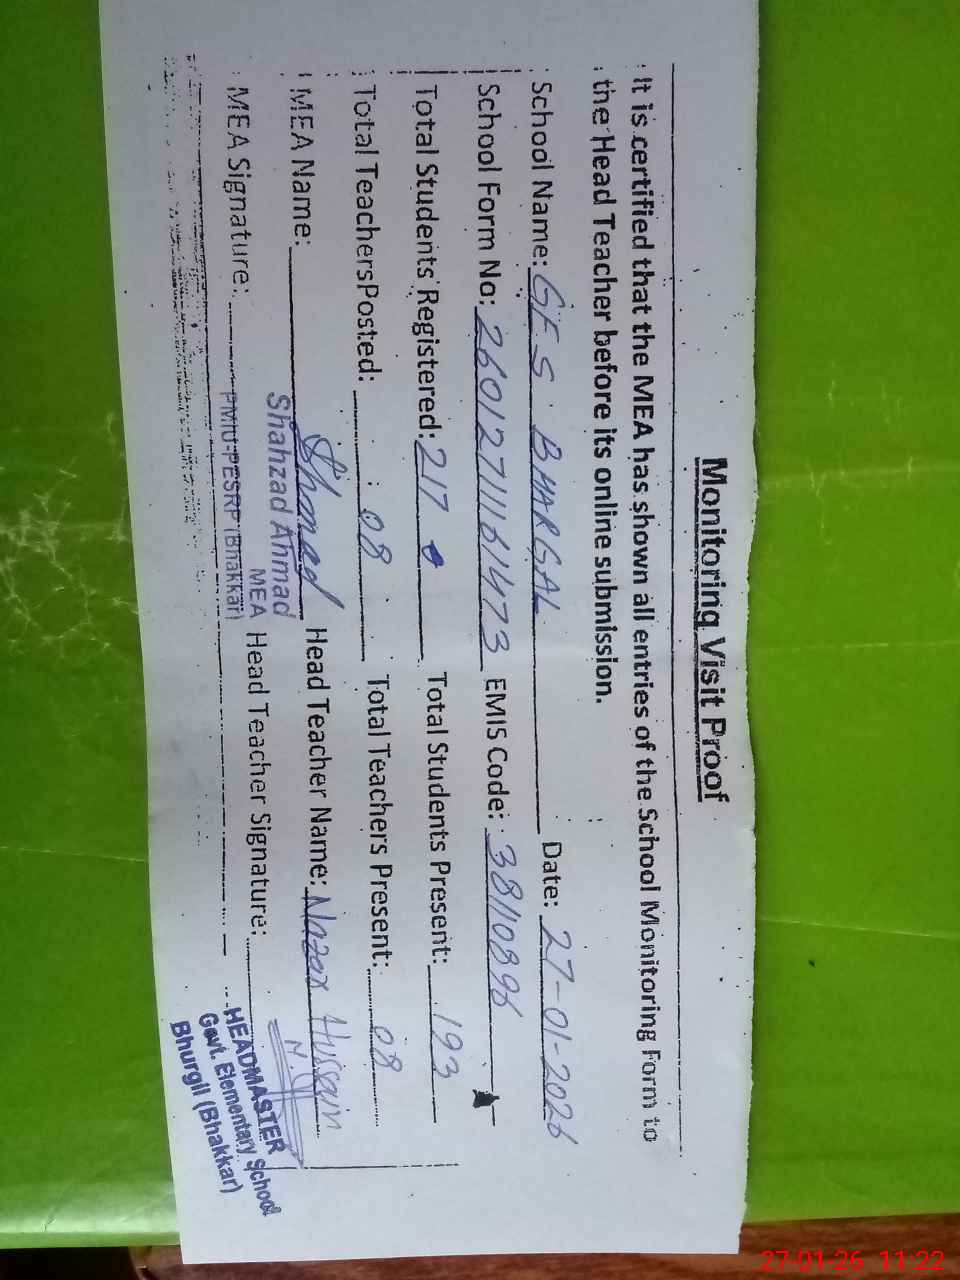 Monitoring Visit Proof
It is certified that the MEA has shown all entries of the School Monitoring Form to
the Head Teacher before its online submission.
School Name: GES BHARGAL Date: 27-01-2026
School Form No: 26012711161473 EMIS Code: 38110896
Total Students Registered: 217 Total Students Present: 193
Total TeachersPosted: 08 Total Teachers Present: 08
MEA Name: Head Teacher Name: Nazar Hussain
Shahzad Ahmad
MEA
MEA Signature: PMIU-PESRP (Bhakkar) Head Teacher Signature:
HEADMASTER
Govt. Elementary School
Bhurgil (Bhakkar)
27-01-26 11:22